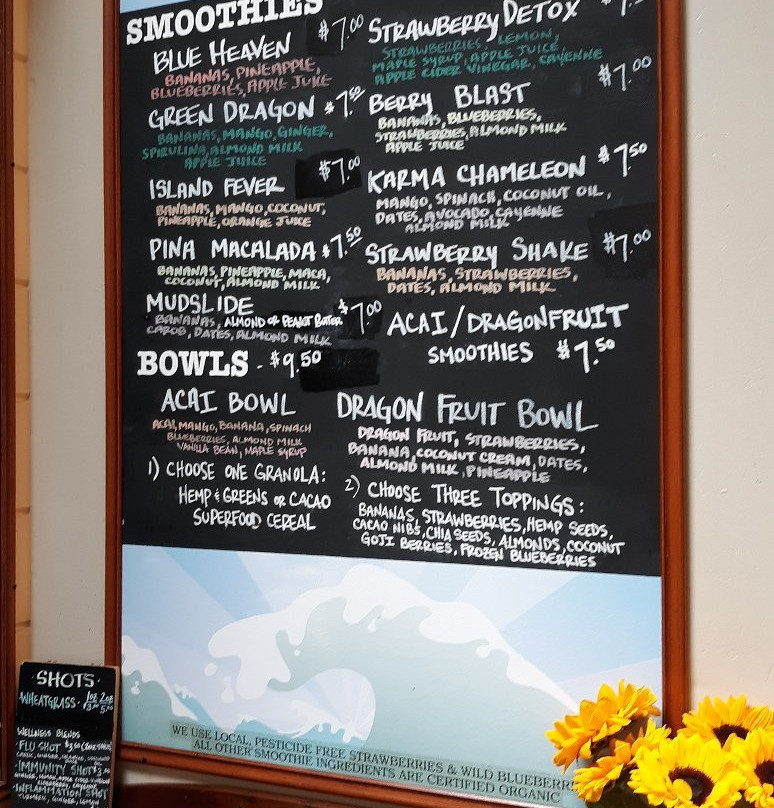 SMOOTHIES
BLUE HEAVEN $7.00
BANANAS, PINEAPPLE,
BLUEBERRIES, APPLE JUICE
GREEN DRAGON $7.50
BANANAS, MANGO, GINGER,
SPIRULINA, ALMOND MILK
APPLE JUICE
ISLAND FEVER $7.00
BANANAS, MANGO, COCONUT,
PINEAPPLE, ORANGE JUICE
PINA MACALADA $7.50
BANANAS, PINEAPPLE, MACA,
COCONUT, ALMOND MILK
MUDSLIDE $7.00
BANANAS, ALMOND OR PEANUT BUTTER
CAROB, DATES, ALMOND MILK
STRAWBERRY DETOX
STRAWBERRIES, LEMON,
MAPLE SYRUP, APPLE JUICE
APPLE CIDER VINEGAR, CAYENNE
BERRY BLAST $7.00
BANANAS, BLUEBERRIES,
STRAWBERRIES, ALMOND MILK
APPLE JUICE
KARMA CHAMELEON $7.50
MANGO, SPINACH, COCONUT OIL,
DATES, AVOCADO, CAYENNE
ALMOND MILK
STRAWBERRY SHAKE $7.00
BANANAS, STRAWBERRIES,
DATES, ALMOND MILK
ACAI/DRAGONFRUIT
SMOOTHIES $7.50
BOWLS - $9.50
ACAI BOWL
ACAI, MANGO, BANANA, SPINACH
BLUEBERRIES, ALMOND MILK
VANILLA BEAN, MAPLE SYRUP
DRAGON FRUIT BOWL
DRAGON FRUIT, STRAWBERRIES,
BANANA, COCONUT CREAM, DATES,
ALMOND MILK, PINEAPPLE
1) CHOOSE ONE GRANOLA:
HEMP & GREENS OR CACAO
SUPERFOOD CEREAL
2) CHOOSE THREE TOPPINGS:
BANANAS, STRAWBERRIES, HEMP SEEDS,
CACAO NIBS, CHIA SEEDS, ALMONDS, COCONUT
GOJI BERRIES, FROZEN BLUEBERRIES
WE USE LOCAL, PESTICIDE FREE STRAWBERRIES & WILD BLUEBERR
ALL OTHER SMOOTHIE INGREDIENTS ARE CERTIFIED ORGANIC
·SHOTS·
WHEATGRASS· 1oz 2oz
WELLNESS BLENDS
·FLU SHOT
·IMMUNITY SHOT
·INFLAMMATION SHOT
TURMERIC, GINGER, LEMON